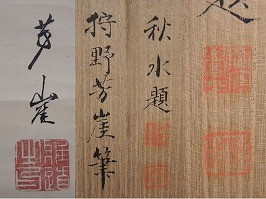 題
秋水題
狩野芳崖筆
芳崖